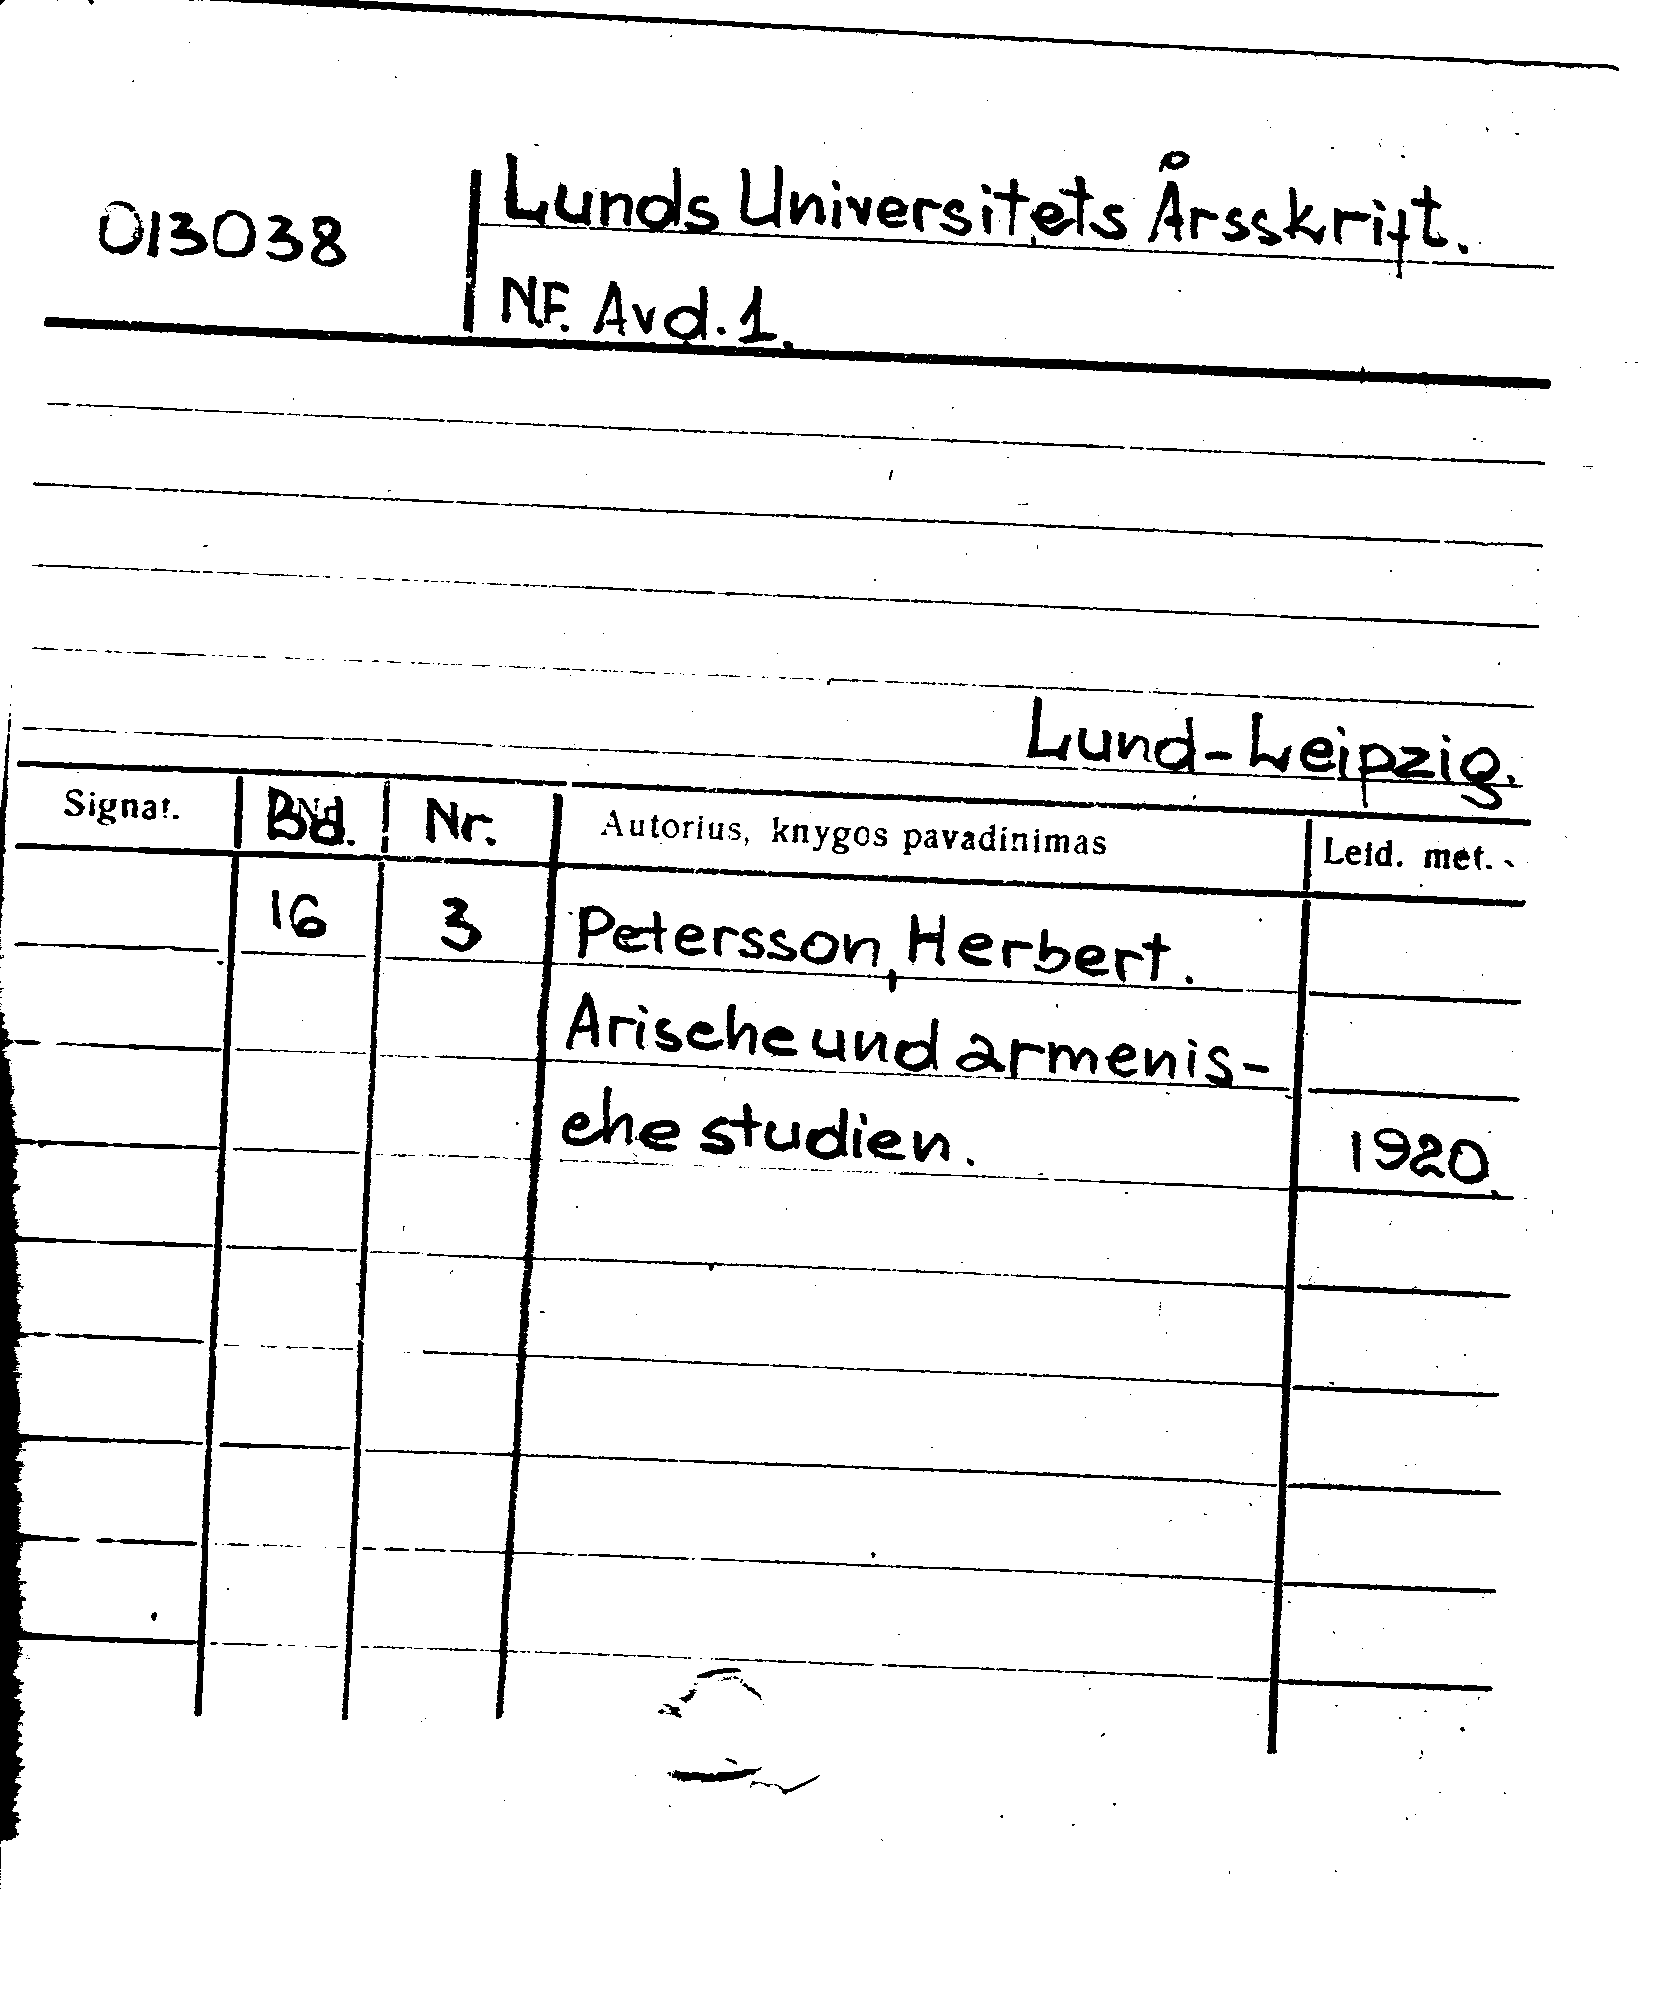 013038
Lunds Universitets Årsskrift.
N.F. Avd. 1.
Lund-Leipzig.
Signat. Bd. Nr. Autorius, knygos pavadinimas Leid. met.
16 3 Petersson, Herbert.
Arische und armenis-
che studien. 1920.